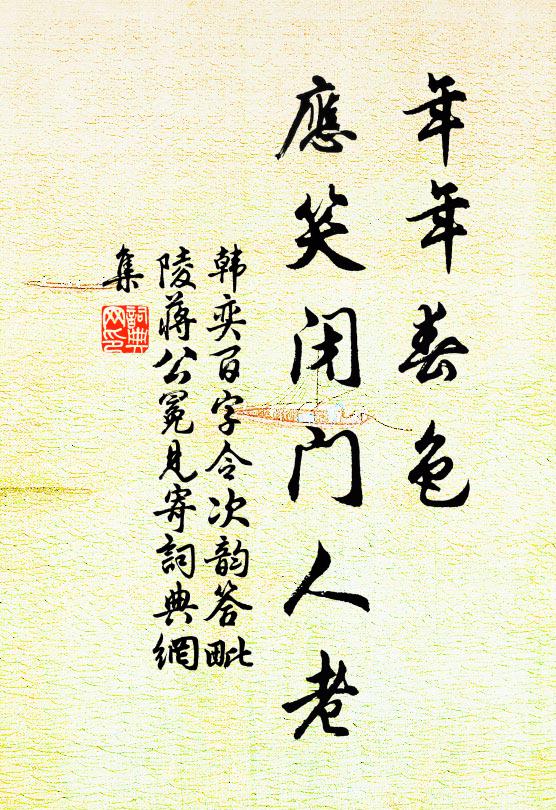 年年春色
應笑閉門人老
韩奕百字令次韵答毗
陵蒋公冕見寄詞典網
集
詞典
网印